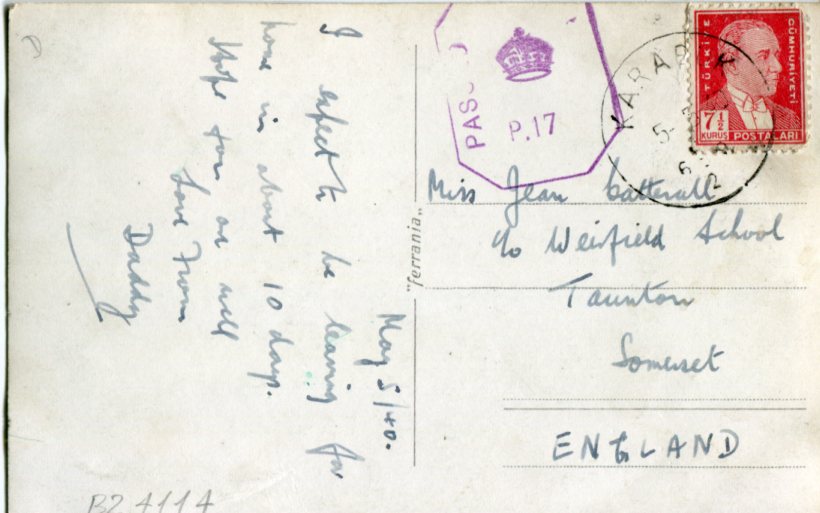 May 5/40.
I expect to be leaving for
home in about 10 days.
Hope you are well
Love from
Daddy
PASS
P.17
KARA
5.
TÜRKİYE
CÜMHURİYETİ
7½
KURUŞ
POSTALARI
Miss Jean Catterall
c/o Weirfield School
Taunton
Somerset
ENGLAND
"ferrania"
B2 4114